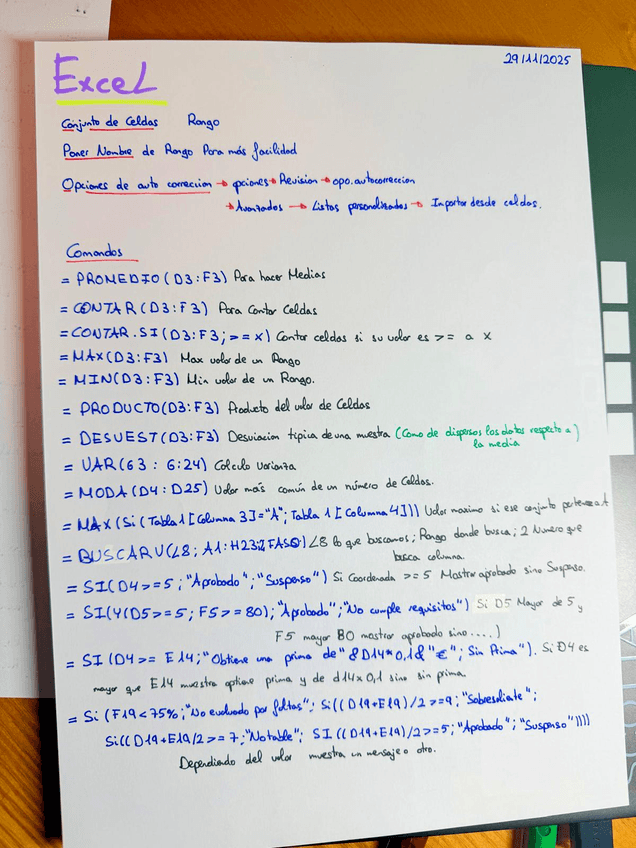 Excel
29/11/2025
Conjunto de Celdas Rango
Poner Nombre de Rango Para más facilidad
Opciones de auto corrección → opciones → Revision → opo.autocorreccion
→ Avanzados → Listas personalizadas → Importar desde celdas.
Comandos
= PROMEDIO (D3:F3) Para hacer Medias
= CONTAR (D3:F3) Para Contar Celdas
= CONTAR.SI (D3:F3; >= x) Contar celdas si su valor es >= a x
= MAX(D3:F3) Max valor de un Rango
= MIN(D3:F3) Min valor de un Rango.
= PRODUCTO(D3:F3) Producto del valor de Celdas
= DESVEST(D3:F3) Desviacion tipica de una muestra (Como de dispersos los datos respecto a)
la media
= VAR(G3 : G:24) Calculo Varianza
= MODA (D4:D25) Valor más común de un número de Celdas.
= MAX (Si (Tabla 1 [Columna 3]="A"; Tabla 1 [Columna 4])) Valor maximo si ese conjunto pertenece a A
= BUSCARV(L8; A1:H23; FALSO) L8 lo que buscamos; Rango donde busca; 2 Numero que
busca columna.
= SI(D4>=5; "Aprobado"; "Suspenso") Si Coordenada >=5 Mostrar aprobado sino Suspenso.
= SI(Y(D5>=5; F5>=80); "Aprobado"; "No cumple requisitos") Si D5 Mayor de 5 y
F5 mayor 80 mostrar aprobado sino....)
= SI (D4>= E14; "Obtiene una prima de" & D14*0,1& "€"; Sin Prima"). Si D4 es
mayor que E14 muestra optiene prima y de d14x0,1 sino sin prima.
= Si (F19<75%; "No evaluado por faltas"; Si((D19+E19)/2>=9; "Sobresaliente";
Si((D19+E19/2>=7; "Notable"; SI ((D19+E19)/2>=5; "Aprobado"; "Suspenso"))))
Dependiendo del valor muestra un mensaje o otro.